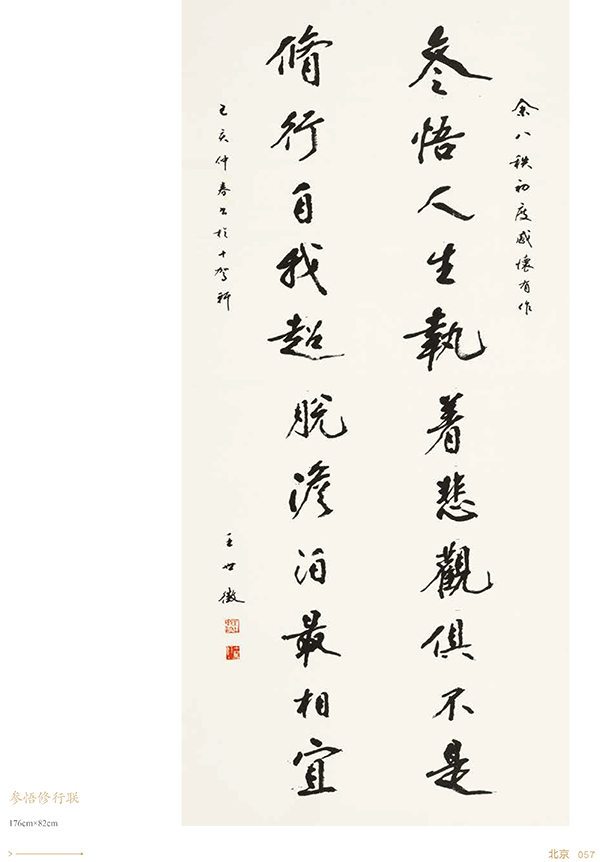 余八秩初度感懷有作
叅悟人生執着悲觀俱不是
脩行自我超脫澹泊最相宜
己亥仲春書於十駕軒
王世徵
参悟修行联
176cm×82cm
北京 057